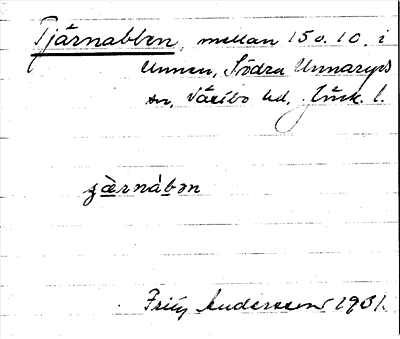 Tjärnabben, mellan 15 o. 10. i
Unnen, Södra Unnaryds
sn, Västbo hd, Jönk. l.
Fritz Andersson 1931.